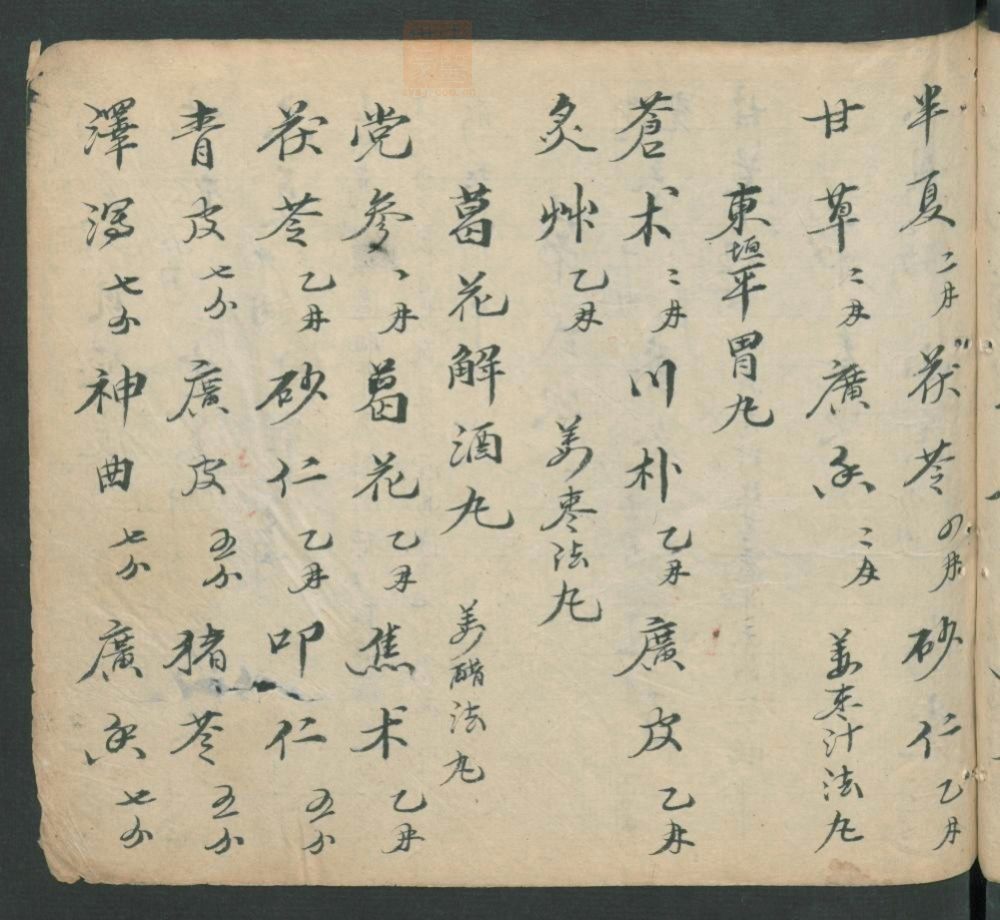 半夏二刄茯苓四刄砂仁乙刄
甘草二刄廣香二刄姜枣汁法丸
東垣平胃丸
蒼术二刄川朴乙刄廣皮乙刄
炙艸乙刄姜枣法丸
葛花解酒丸姜醋法丸
党參刄葛花乙刄焦术乙刄
茯苓乙刄砂仁乙刄叩仁五分
青皮七分廣皮五分猪苓五分
澤瀉七分神曲七分廣香七分